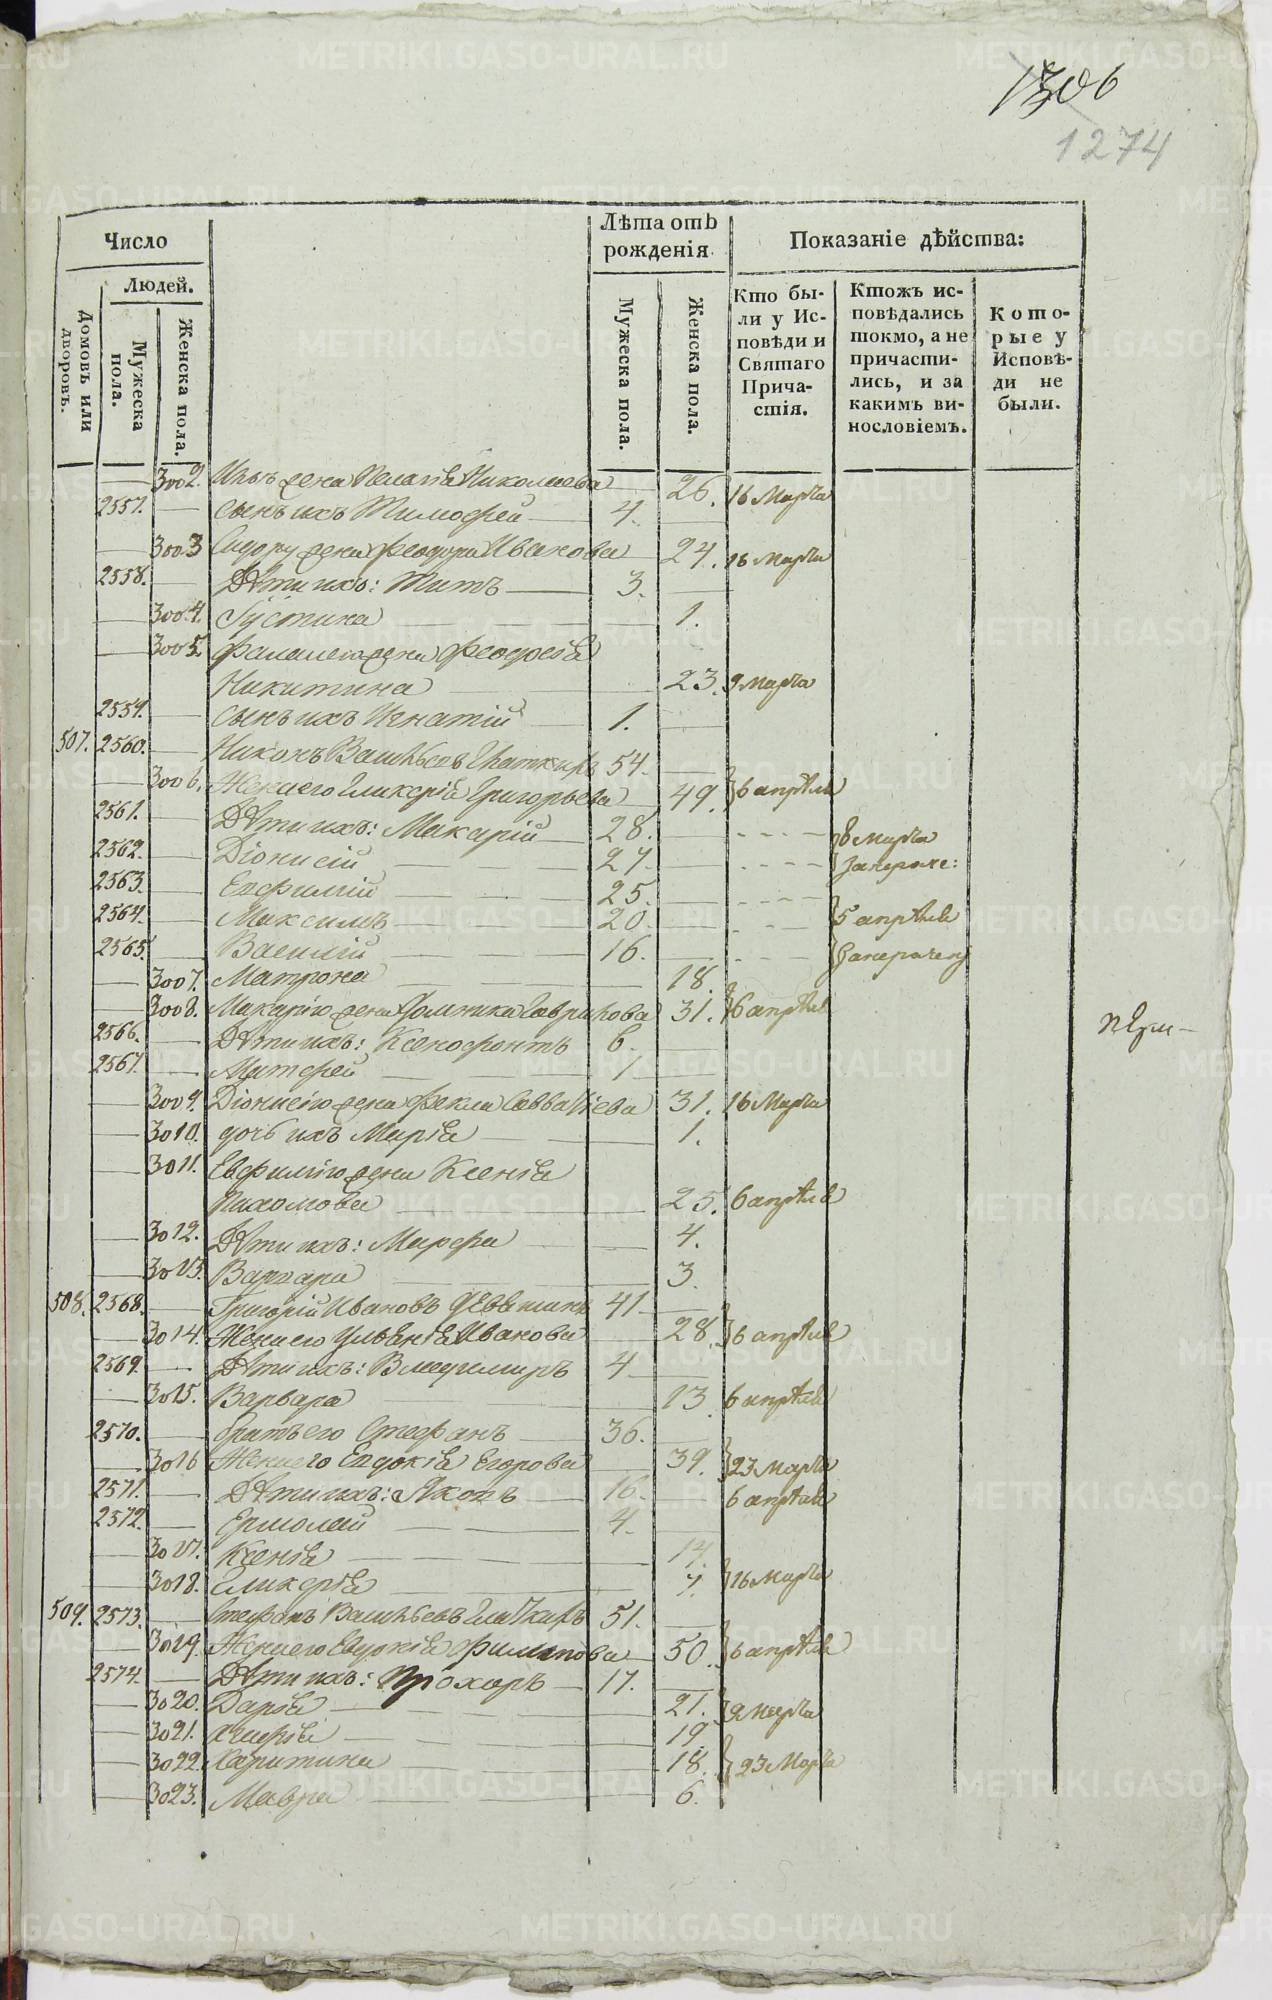 1306
1274
Число
Лѣта отъ рожденія
Показаніе дѣйства:
Людей.
Домовъ или дворовъ.
Мужеска пола.
Женска пола.
Мужеска пола.
Женска пола.
Кто были у Исповѣди и Святаго Причастія.
Ктожъ исповѣдались токмо, а не причастились, и за какимъ винословіемъ.
Которые у Исповѣди не были.
3002. жена Пелагія Николаева 26. 16 Марта
2557. сынъ ихъ Тимофей 4.
3003 Сидору жена Феодора Иванова 24. 16 Марта
2558. Дѣти ихъ: Титъ 3.
3004. Іустина 1.
3005. жена Феодосія
Никитина 23. 9 Марта
2559. сынъ ихъ Игнатій 1.
507. 2560. Никонъ Васильевъ 54.
3006. Жена его Гликерія Григорьева 49. 6 апрѣля
2561. Дѣти ихъ: Макарій 28. 8 марта
2562. Діонисій 27.
2563. Евфимій 25.
2564. Максимъ 20. 5 апрѣля
2565. Василій 16.
3007. Матрона 18.
3008. Макарію жена Домника Гаврилова 31. 6 апрѣля
2566. Дѣти ихъ: Ксенофонтъ 6.
2567. Матфей 1
3009. Діонисію жена Фекла Савватіева 31. 16 Марта
3010. дочь ихъ Марія 1.
3011. Евфимію жена Ксенія
Пахомова 25. 6 апрѣля
3012. Дѣти ихъ: Марфа 4.
3013. Варвара 3.
508. 2568. Григорій Ивановъ 41
3014. Жена его Ульянія Иванова 28. 6 апрѣля
2569. Дѣти ихъ: Владимиръ 4
3015. Варвара 13. 6 апрѣля
2570. Братъ его Стефанъ 36.
3016 Жена его Евдокія Егорова 39. 23 Марта
2571. Дѣти ихъ: Яковъ 16. 6 апрѣля
2572. Ермолай 4.
3017. Ксенія 14.
3018. Гликерія 7. 16 Марта
509. 2573. Стефанъ Васильевъ 51.
3019. Жена его Евдокія Филипова 50. 6 апрѣля
2574. Дѣти ихъ: Прохоръ 17.
3020. Дарія 21. 9 марта
3021. 19.
3022. Харитина 18. 23 Марта
3023. Мавра 6.